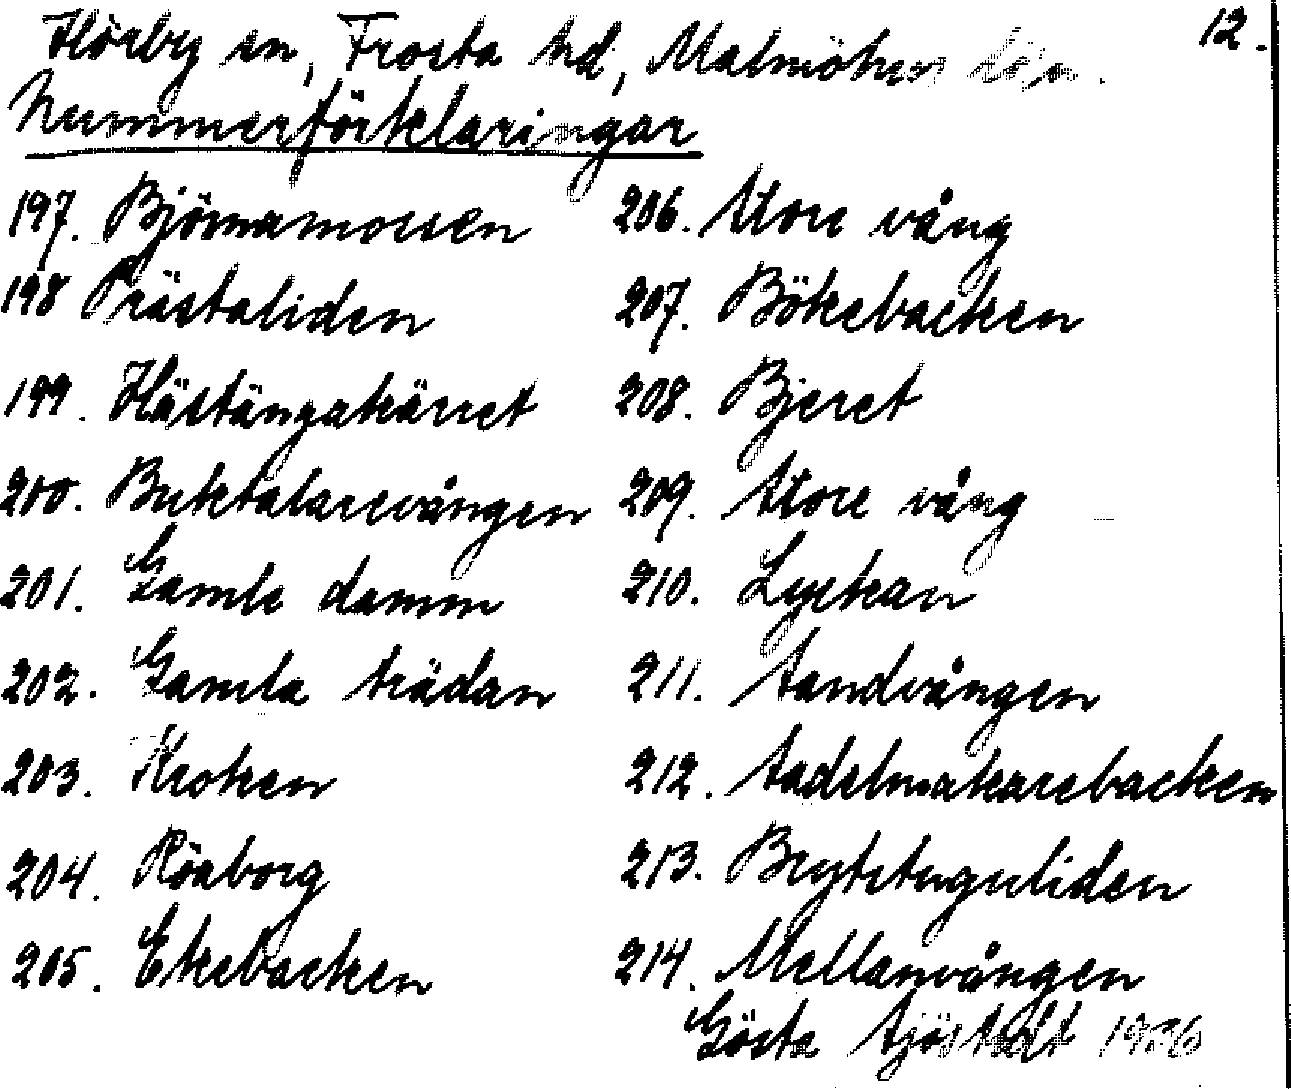 12.
Hörby sn, Frosta hd, Malmöhus län.
Nummerförklaringar
197. Björnamossen
198 Prästaliden
199. Hästängakärret
200. Buktalarevången
201. Gamle damm
202. Gamla trädan
203. Kroken
204. Röaborg
205. Ekebacken
206. Store vång
207. Bökebacken
208. Bjeret
209. Store vång
210. Lyckan
211. Sandvången
212. Sadelmakarebacken
213. Brytstuguliden
214. Mellanvången
Gösta Sjöstedt 1936